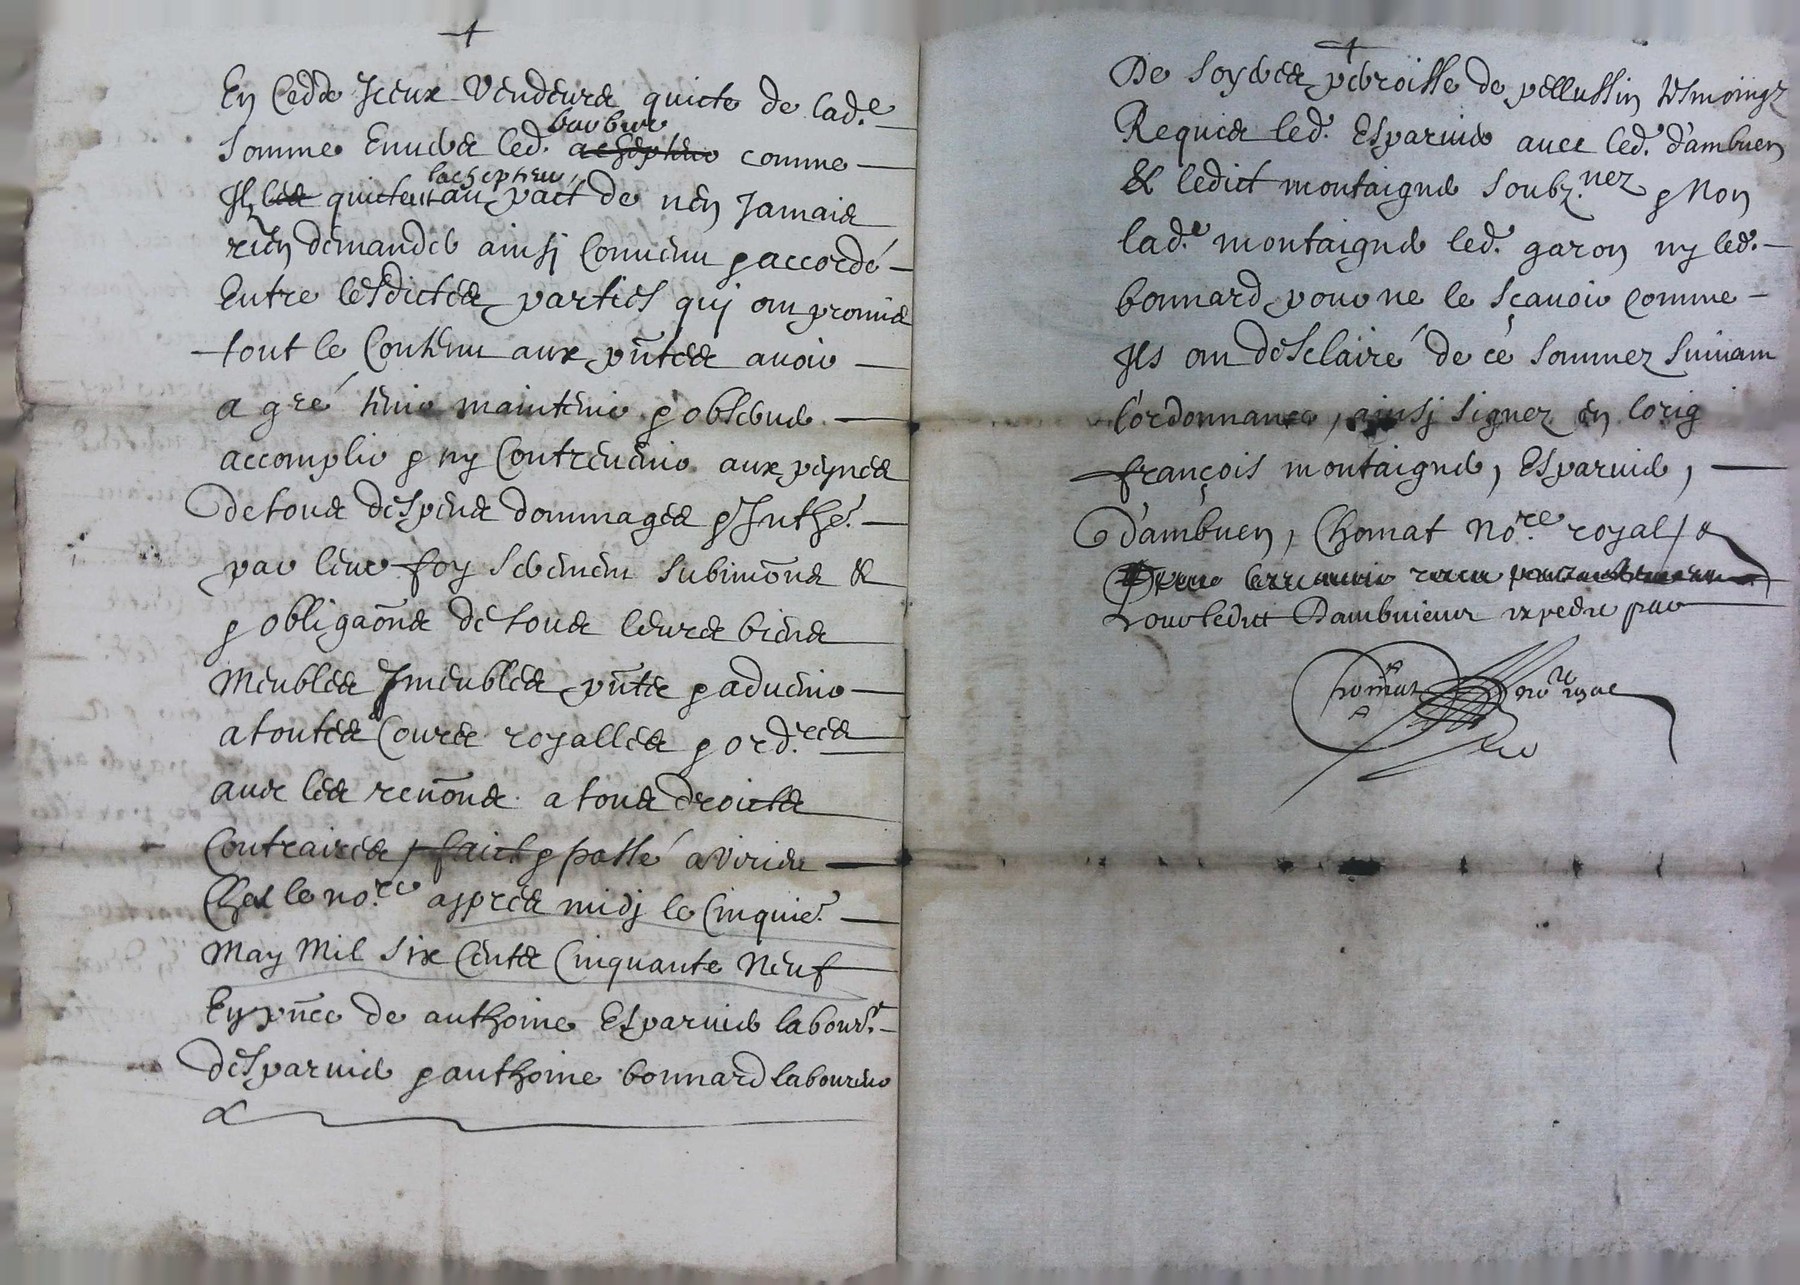 En Cedx Jceux Vendeurs quicte de lad.e
barbier
somme Enuers led. comme
lachepteur
Jlz quictent au pact de nen Jamais
rien demander ainsj Conuenu & accordé
Entre lesdictes parties quj ont promis
tout le Contenu aux pntes auoir
a gré tenir maintenir & obserue
accomplir & ny Contreuenir aux peynes
de tous despens dommages & Inthe.
par leur foy serement submions &
& obligaons de tous leurs biens
meubles Jmeubles pntz & aduenir
a toutes Cours royalles & ord.res
auec les renons a tous droicts
Contraires, faict & passé a Virieu
Chez le no.re appres midj le Cinquie.
may mil six Cents Cinquante neuf
En pnce de anthoine Esparuier labour.r
desparuier & anthoine bonnard laboureur
De soyeres parroisse de pellussin tesmoingz
Requis led. Esparuier auec led. d'ambuen
& ledict montaigner soubz.nez & Non
lad.e montaigner led. garon ny led.
bonnard pour ne le sçauoir comme
Jls ont desclairé de ce sommez suiuant
l'ordonnance, ainsj signez en lorig
françois montaigner, Esparuier,
D'ambuen, Chomat No.re royal, &
Pour ledict Dambuieun expedie par
Chomat no.re royal